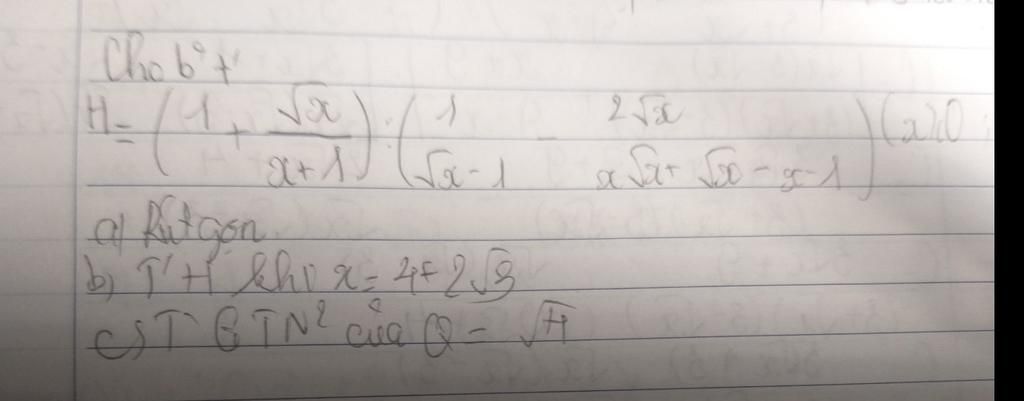 Cho b't'
H = (1 + √x / x+1) : (1 / √x-1 - 2√x / x√x + √x - x - 1) (x≥0
a) Rút gọn
b) T' H khi x = 4+2√3
c) T` GTN² của Q = √H